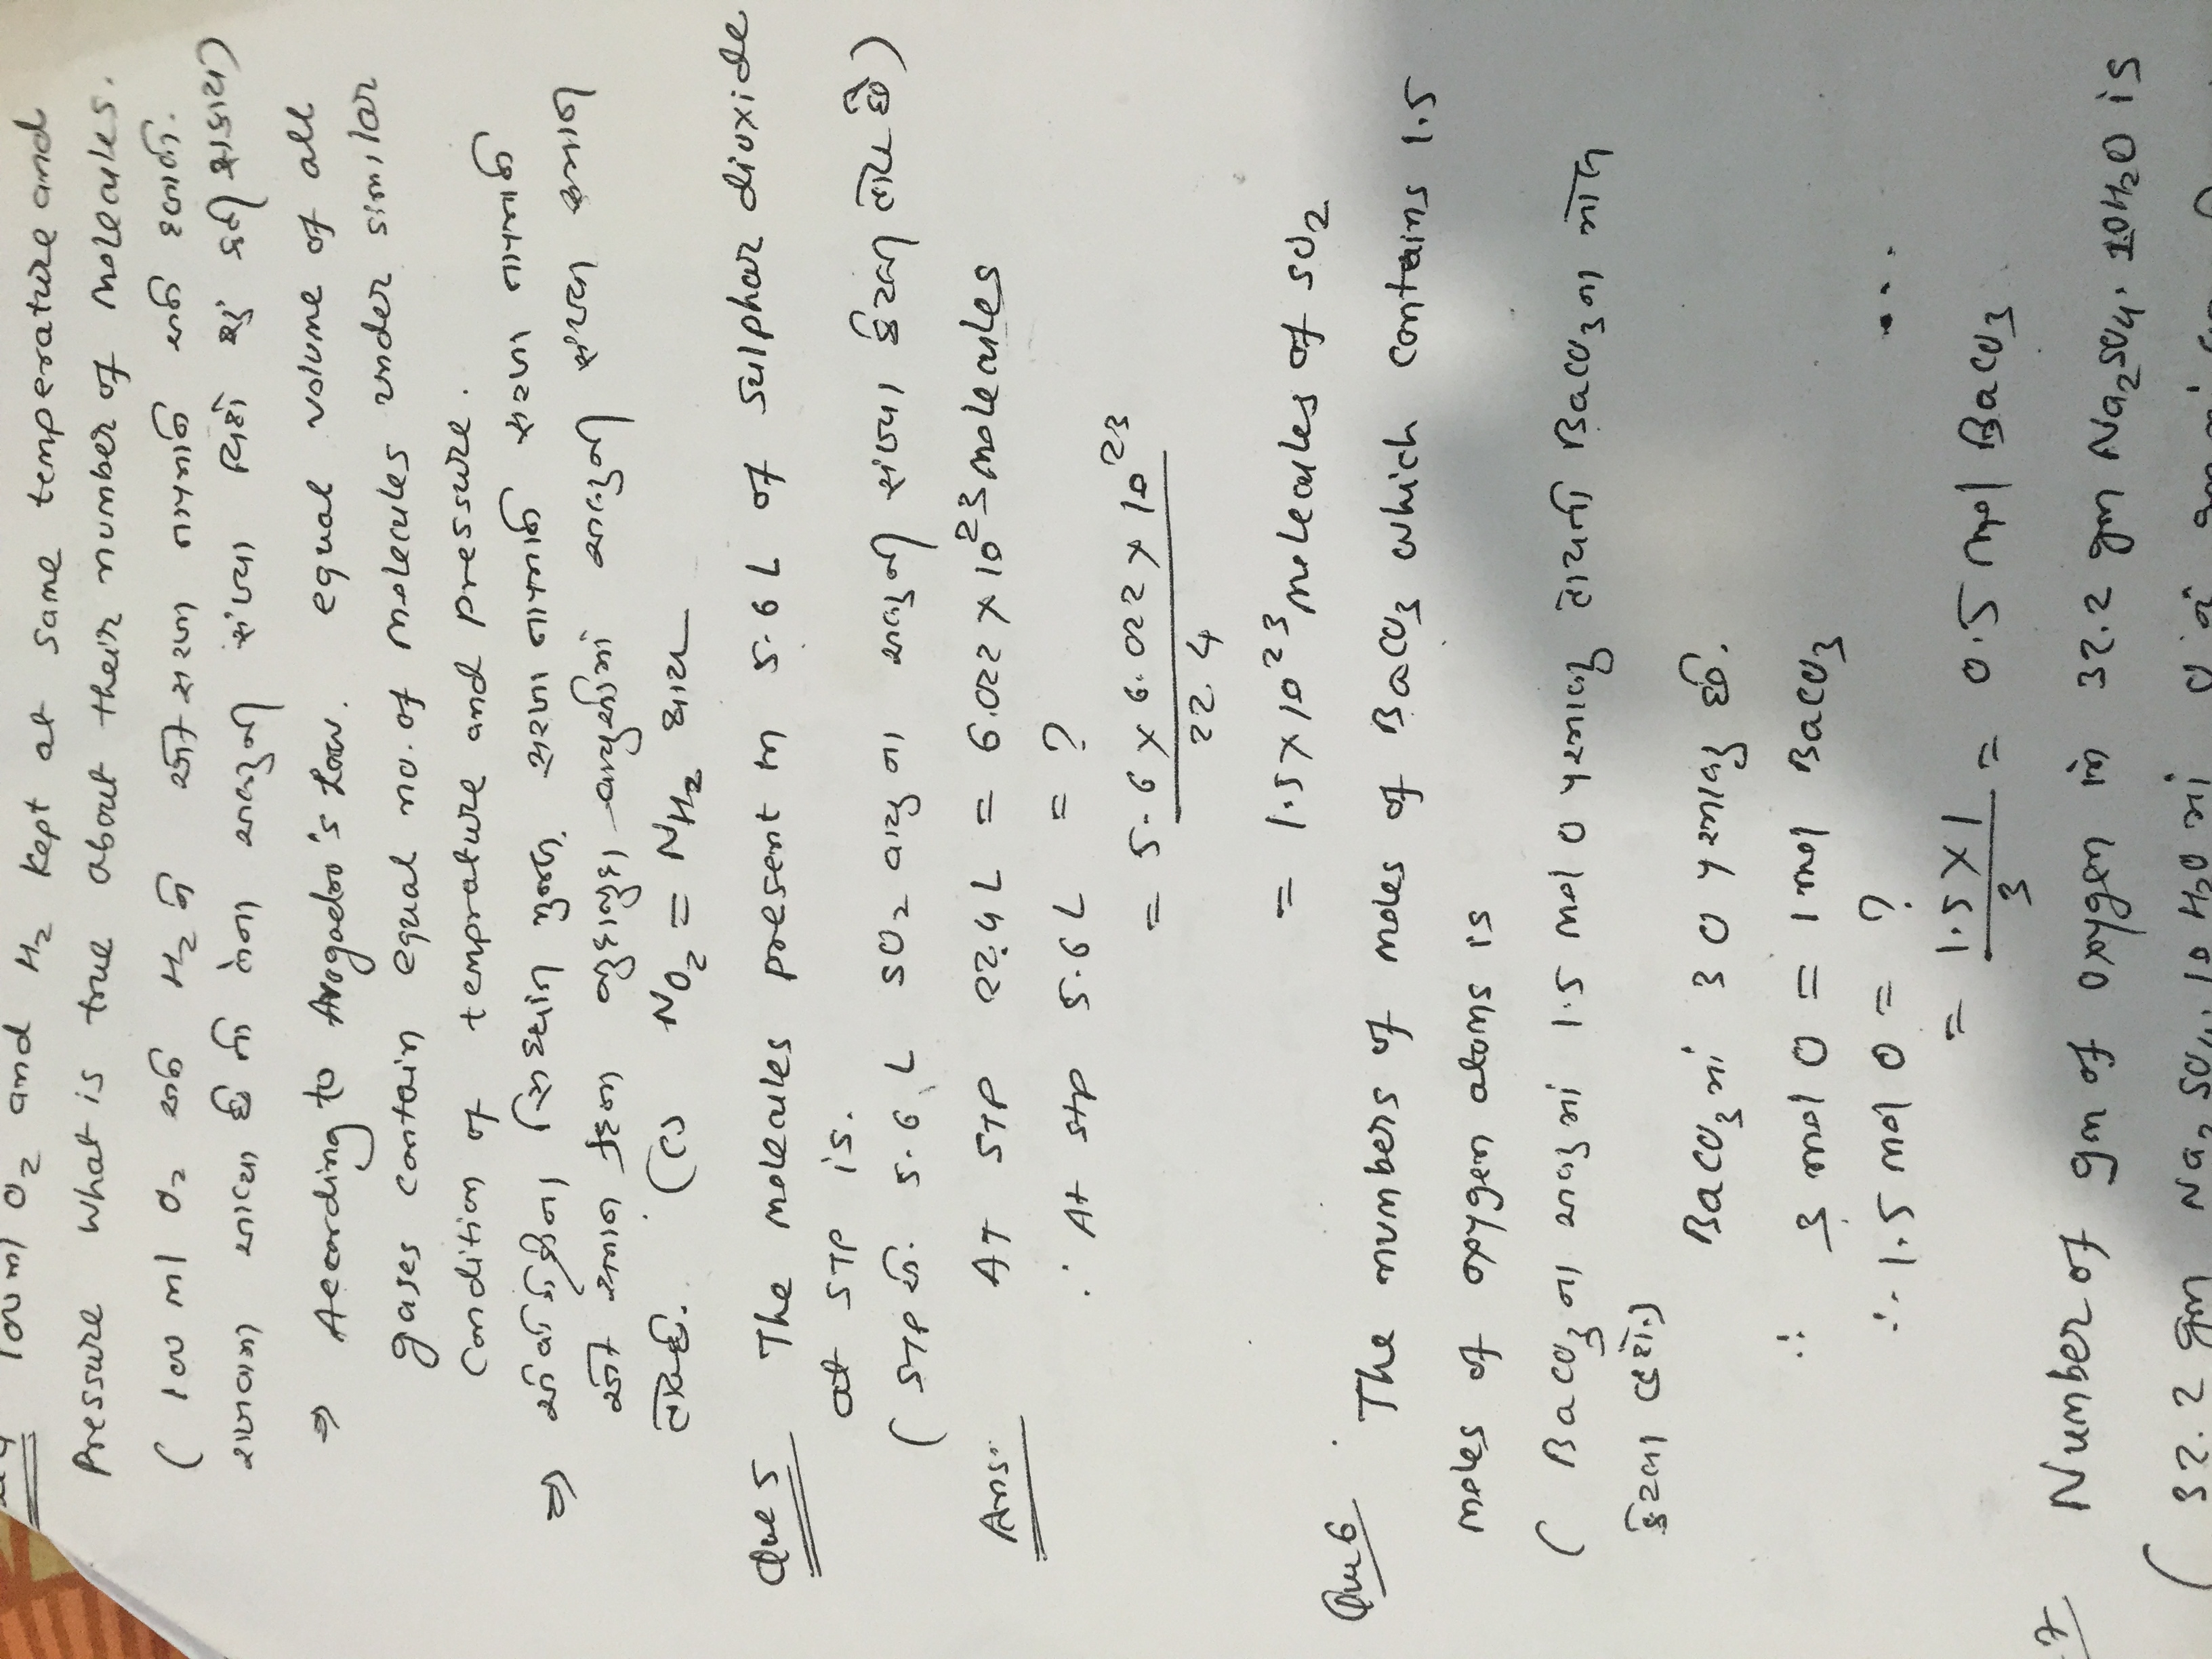 100 ml O2 and H2 kept at same temperature and
Pressure what is true about their number of molecules.
( 100 ml O2 અને H2 ને એક સરખા તાપમાને અને દબાણે
રાખવામાં આવ્યા છે તો તેના અણુની સંખ્યા વિશે શું કહી શકાય)
⇒ According to Avogadro's Law. equal volume of all
gases contain equal no. of molecules under similar
condition of temprature and pressure.
⇒ એવોગેડ્રોના સિદ્ધાંત મુજબ. સરખા તાપમાને સરખા
એક સમાન કદના જુદાજુદા વાયુઓમાં અણુની સંખ્યા સમાન
હોય છે. (C) NO2 = NH2 થાય
Que 5 The molecules present in 5.6 L of sulphar dioxide
at STP is.
( STP એ. 5.6 L SO2 વાયુ ના અણુની સંખ્યા કેટલા હોય છે)
Ans: AT STP 22.4 L = 6.022 × 10^23 molecules
∴ At stp 5.6 L = ?
= 5.6 × 6.022 × 10^23 / 22.4
= 1.5 × 10^23 molecules of SO2
Que 6 The numbers of moles of BaCO3 which contains 1.5
moles of oxygen atoms is
( BaCO3 ના અણુ માં 1.5 mol O પરમાણુ હોય તો BaCO3 ના મોલ
કેટલા હશે.)
BaCO3 માં 3 O પરમાણુ છે.
∴ 3 mol O = 1 mol BaCO3
∴ 1.5 mol O = ?
= 1.5 × 1 / 3 = 0.5 mol BaCO3
7 Number of gm of oxygen in 32.2 gm Na2SO4. 10H2O is
( 32.2 gm Na2SO4. 10 H2O માં